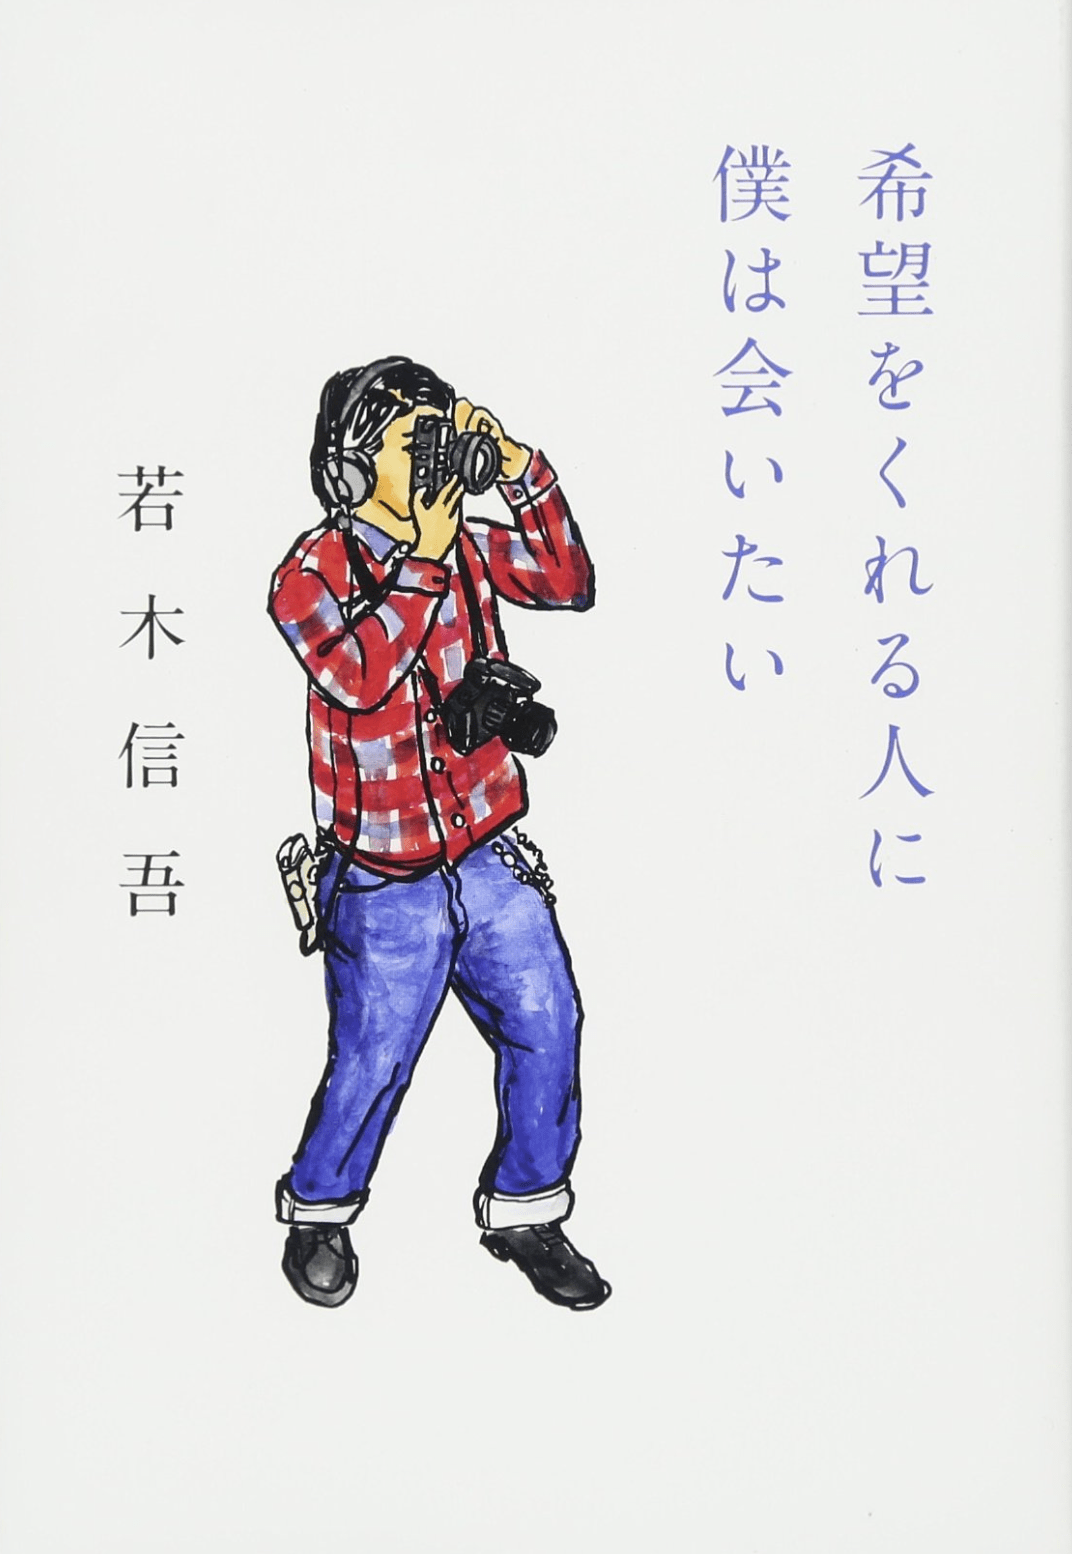 希望をくれる人に
僕は会いたい
若木信吾